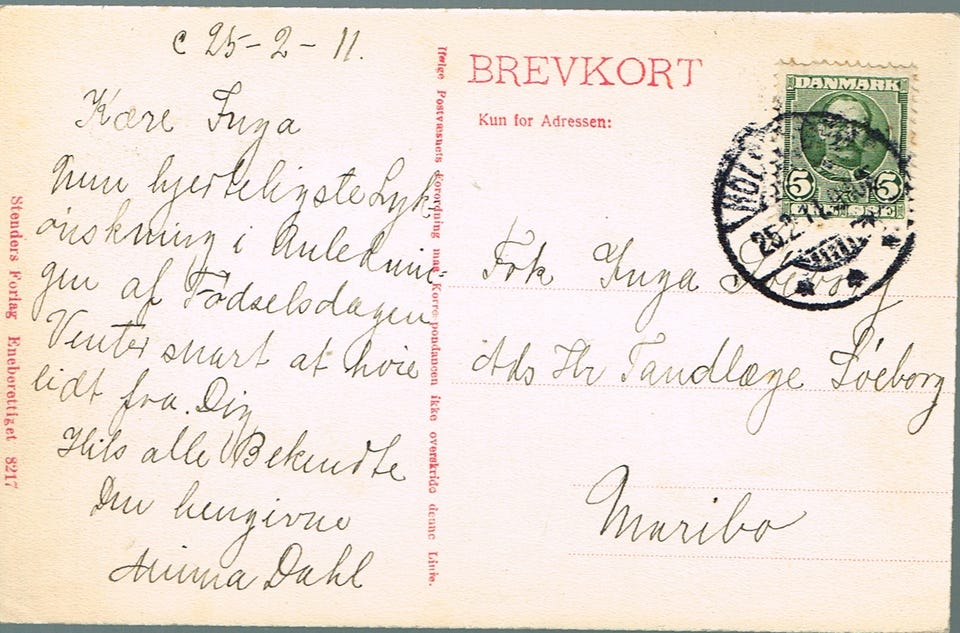 c 25-2-11.
Kære Inga
Min hjerteligste Lyk-
ønskning i Anlednin-
gen af Fødselsdagen
Venter snart at høre
lidt fra Dig.
Hils alle Bekendte
Din hengivne
Minna Dahl
Ifølge Postvæsnets Forordning maa Korrespondancen ikke overskride denne Linie.
Stenders Forlag Eneberettiget 8217
BREVKORT
Kun for Adressen:
DANMARK
5 5
25.2.11
Frk Inga Søeborg
Ads Hr Tandlæge Søeborg
Maribo